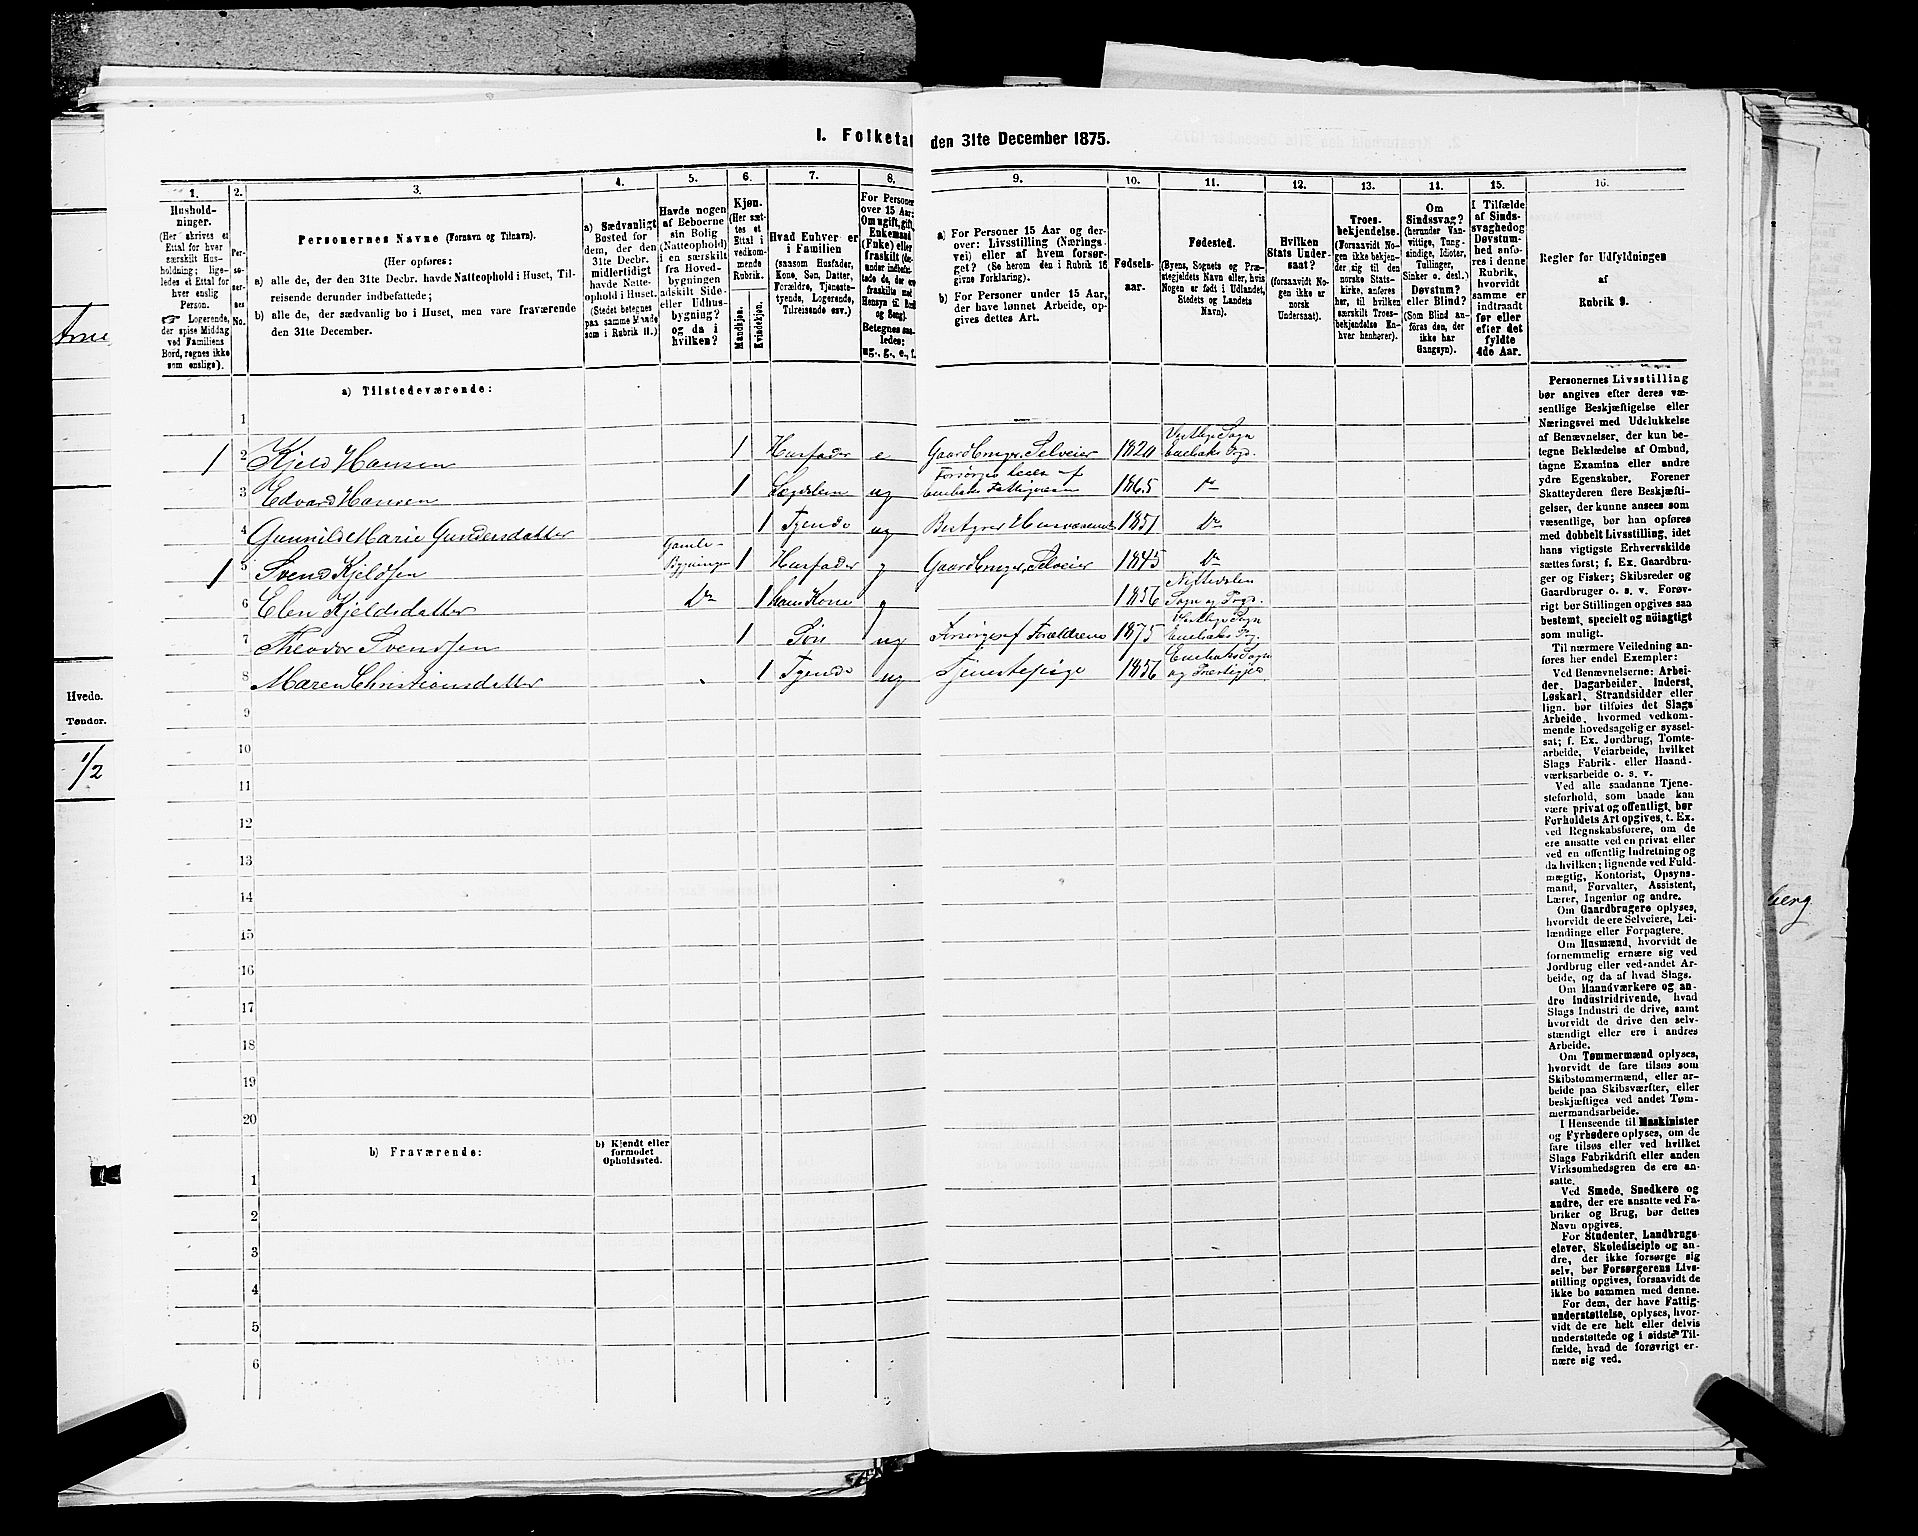 1. Folketal den 31te December 1875.
1.
Hushold-
ninger.
(Her skrives et
Ettal for hver
særskilt Hus-
holdning; lige-
ledes et Ettal for
hver enslig
Person.
Logerende,
der spise Middag
ved Familiens
Bord, regnes ikke
som enslige).
2.
Per-
so-
ner-
nes
No.
3.
Personernes Navne (Fornavn og Tilnavn).
(Her opføres:
a) alle de, der den 31te Decbr. havde Natteophold i Huset, Til-
reisende derunder indbefattede;
b) alle de, der sædvanlig bo i Huset, men vare fraværende
den 31te December.
4.
a) Sædvanligt
Bosted for
dem, der den
31te Decbr.
midlertidigt
havde Natte-
ophold i Huset.
(Stedet betegnes
paa samme Maade
som i Rubrik II.)
5.
Havde nogen
af Beboerne
sin Bolig
(Natteophold)
i en særskilt
fra Hoved-
bygningen
adskilt Side-
eller Udhus-
bygning?
og da i
hvilken?
6.
Kjøn.
(Her sæt-
tes et
Ettal i
vedkom-
mende
Rubrik.
Mandkjøn.
Kvindekjøn.
7.
Hvad Enhver er
i Familien
(saasom Husfader,
Kone, Søn, Datter,
Forældre, Tjeneste-
tyende, Logerende,
Tilreisende osv.)
8.
For Personer
over 15 Aar:
Om ugift, gift,
Enkemand
(Enke) eller
fraskilt
Betegnes saa-
ledes:
ug., g., e., f.
9.
a) For Personer 15 Aar og der-
over: Livsstilling (Nærings-
vei) eller af hvem forsør-
get? (Se herom den i Rubrik 16
givne Forklaring).
b) For Personer under 15 Aar,
der have lønnet Arbeide, op-
gives dettes Art.
10.
Fødsels-
aar.
11.
Fødested.
(Byens, Sognets og Præ-
stegjeldets Navn eller, hvis
Nogen er født i Udlandet,
Stedets og Landets
Navn).
12.
Hvilken
Stats Under-
saat?
(forsaavidt No-
gen ikke er
norsk
Undersaat).
13.
Troes-
bekjendelse.
(Forsaavidt No-
gen ikke bekjen-
der sig til den
norske Stats-
kirke, anføres
her, til hvilken
særskilt Troes-
bekjendelse En-
hver henhører).
14.
Om
Sindssvag?
(herunder Van-
vittige, Tung-
sindige, Idioter,
Tullinger,
Sinker o. desl.)
Døvstum?
eller Blind?
(Som Blind an-
føres den, der
ikke har
Gangsyn).
15.
I Tilfælde
af Sinds-
svaghed og
Døvstum-
hed anfø-
res i denne
Rubrik,
hvorvidt
samme er
indtraadt
før eller
efter det
fyldte
4de Aar.
16.
Regler for Udfyldningen
af
Rubrik 9.
a) Tilstedeværende:
1
1 2 Kjeld Hansen 1 Husfader e Gaardbruger, Selveier 1820 Sogn
Enebaks Prgd.
3 Edvard Hansen 1 Lægdslem ug Forsørges af
Enebaks Fattigvæsen 1865 Do
4 Gunnild Marie Gundersdatter 1 Tyende ug Bestyrer Husvæsenet 1851 Do
1 5 Svend Kjeldsen Gamle
Bygningen 1 Husfader g Gaardbruger, Selveier 1845 Do
6 Elen Kjeldsdatter Do 1 hans Kone g 1856 Nittedalen
Sogn og Prgd.
7 Theodor Svendsen 1 Søn ug Forsørges af Forældrene 1875 Sogn
Enebaks Prg.
8 Maren Christiansdatter 1 Tyende ug Tjenestepige 1856 Enebaks Sogn
og Præstegjeld
9
10
11
12
13
14
15
16
17
18
19
20
b) Fraværende:
b) Kjendt eller
formodet
Opholdssted.
1
2
3
4
5
6
Personernes Livsstilling
bør angives efter deres væ-
sentlige Beskjæftigelse eller
Næringsvei med Udelukkelse
af Benævnelser, der kun be-
tegne Beklædelse af Ombud,
tagne Examina eller andre
ydre Egenskaber. Forener
Skatteyderen flere Beskjæfti-
gelser, der kunne ansees som
væsentlige, bør han opføres
med dobbelt Livsstilling, idet
hans vigtigste Erhvervskilde
sættes først; f. Ex. Gaardbru-
ger og Fisker; Skibsreder og
Gaardbruger o. s. v. Forøv-
rigt bør Stillingen opgives saa
bestemt, specielt og nøiagtigt
som muligt.
Til nærmere Veiledning an-
føres her endel Exempler:
Ved Benævnelserne: Arbei-
der, Dagarbeider, Inderst,
Løskarl, Strandsidder eller
lign. bør tilføies det Slags
Arbeide, hvormed vedkom-
mende hovedsagelig er syssel-
sat; f. Ex. Jordbrug, Tomte-
arbeide, Veiarbeide, hvilket
Slags Fabrik- eller Haand-
værksarbeide o. s. v.
Ved alle saadanne Tjene-
steforhold, som baade kan
være privat og offentligt, bør
Forholdets Art opgives, t. Ex.
ved Regnskabsførere, om de
ere ansatte ved en privat eller
ved en offentlig Indretning og
da hvilken; lignende ved Fuld-
mægtig, Kontorist, Opsyns-
mand, Forvalter, Assistent,
Lærer, Ingeniør og andre.
Om Gaardbrugere oplyses,
hvorvidt de ere Selveiere, Lei-
lændinge eller Forpagtere.
Om Husmænd, hvorvidt de
fornemmelig ernære sig ved
Jordbrug eller ved andet Ar-
beide, og da af hvad Slags.
Om Haandværkere og an-
dre Industridrivende, hvad
Slags Industri de drive, samt
hvorvidt de drive den selv-
stændigt eller ere i andres
Arbeide.
Om Tømmermænd oplyses,
hvorvidt de fare tilsøs som
Skibstømmermænd, eller ar-
beide paa Skibsværfter, eller
beskjæftiges ved andet Tøm-
mermandsarbeide.
I Henseende til Maskinister
og Fyrbødere oplyses, om de
fare tilsøs eller ved hvilket
Slags Fabrikdrift eller anden
Virksomhedsgren de ere an-
satte.
Ved Smede, Snedkere og
andre, der ere ansatte ved Fa-
briker og Brug, bør dettes
Navn opgives.
For Studenter, Landbrugs-
elever, Skoledisciple og an-
dre, der ikke forsørge sig
selv, bør Forsørgerens Livs-
stilling opgives, forsaavidt de
ikke bo sammen med denne.
For dem, der have Fattig-
understøttelse, oplyses, hvor-
vidt de ere helt eller delvis
understøttede og i sidste Til-
fælde, hvad de forøvrigt er-
nære sig ved.
Hvede.
Tønder.
1/2
berg